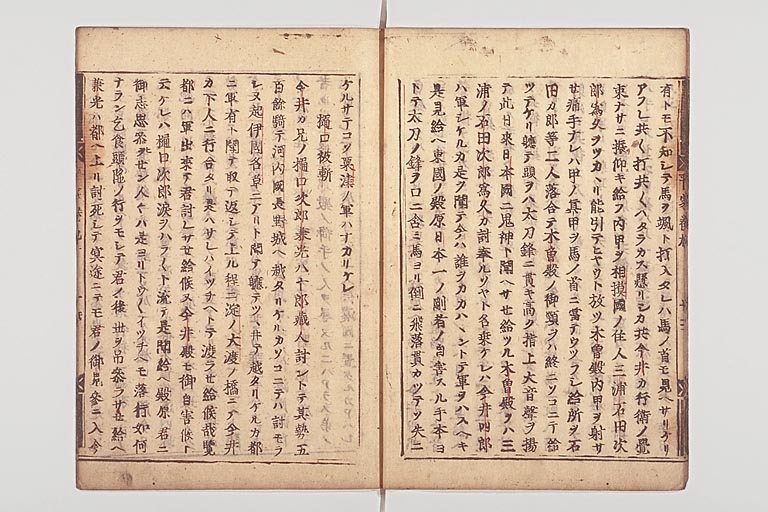 有トモ不知シテ馬ヲ颯ト打入タレハ馬ノ首モ見ヘサリケリ
アフレ共〱打共〱ハタラカス懸リシカ共今井カ行衛ノ覺
束ナサニ振仰キ給フ内甲ヲ相摸國ノ住人三浦石田次
郎爲久ヲツカヽリ能引テヒヤウト放ツ木曽殿内甲ヲ射サ
セ痛手ナレハ甲ノ眞甲ヲ馬ノ首ニ當テウツフシ給所ヲ石
田カ郎等二人落合テ木曽殿ノ御頸ヲハ終ニソコニテ給
ツテケリ軈テ頭ヲハ太刀鋒ニ貫キ高ク指上大音聲ヲ揚
テ此日來日本國ニ鬼神ト聞ヘサセ給ツル木曽殿ヲハ三
浦ノ石田次郎爲久カ討奉ルソヤト名乗ケレハ今井四郎
ハ軍シケルカ是ヲ聞テ今ハ誰ヲカカハヽントテ軍ヲハスヘキ
是見給ヘ東國ノ殿原日本一ノ剛者ノ自害スル手本ヨ
トテ太刀ノ鋒ヲ口ニ含ミ馬ヨリ倒ニ飛落貫カツテソ失ニ
ケルサテコソ粟津ノ軍ハナカリケレ
樋口被斬
今井カ兄ノ樋口次郎兼光ハ十郎藏人討ントテ其勢五
百餘騎テ河内國長野城ヘ越タリケルカソコニテハ討モラ
シヌ紀伊國名草ニアリト聞テ軈テツヽ井テ越タリケルカ都
ニ軍有ト聞テ取テ返シテ上ル程ニ淀ノ大渡ノ橋ニテ今井
カ下人ニ行合タリ是ハサレハイツチヘトテ渡ラセ給候哉覽
都ニハ軍出來テ君討レサセ給候ヌ今井殿モ御自害候ト
云ケレハ樋口次郎涙ヲハラ〱ト流テ是聞給ヘ殿原君ニ
御志思召サセン人〱ハ是ヨリトウ〱イツチヘモ落行如何
ナラン乞食頭陀ノ行ヲモシテ君ノ後世ヲ吊參ラサセ給ヘ
兼光ハ都ヘ上リ討死シテ冥途ニテモ君ノ御見參ニ入今